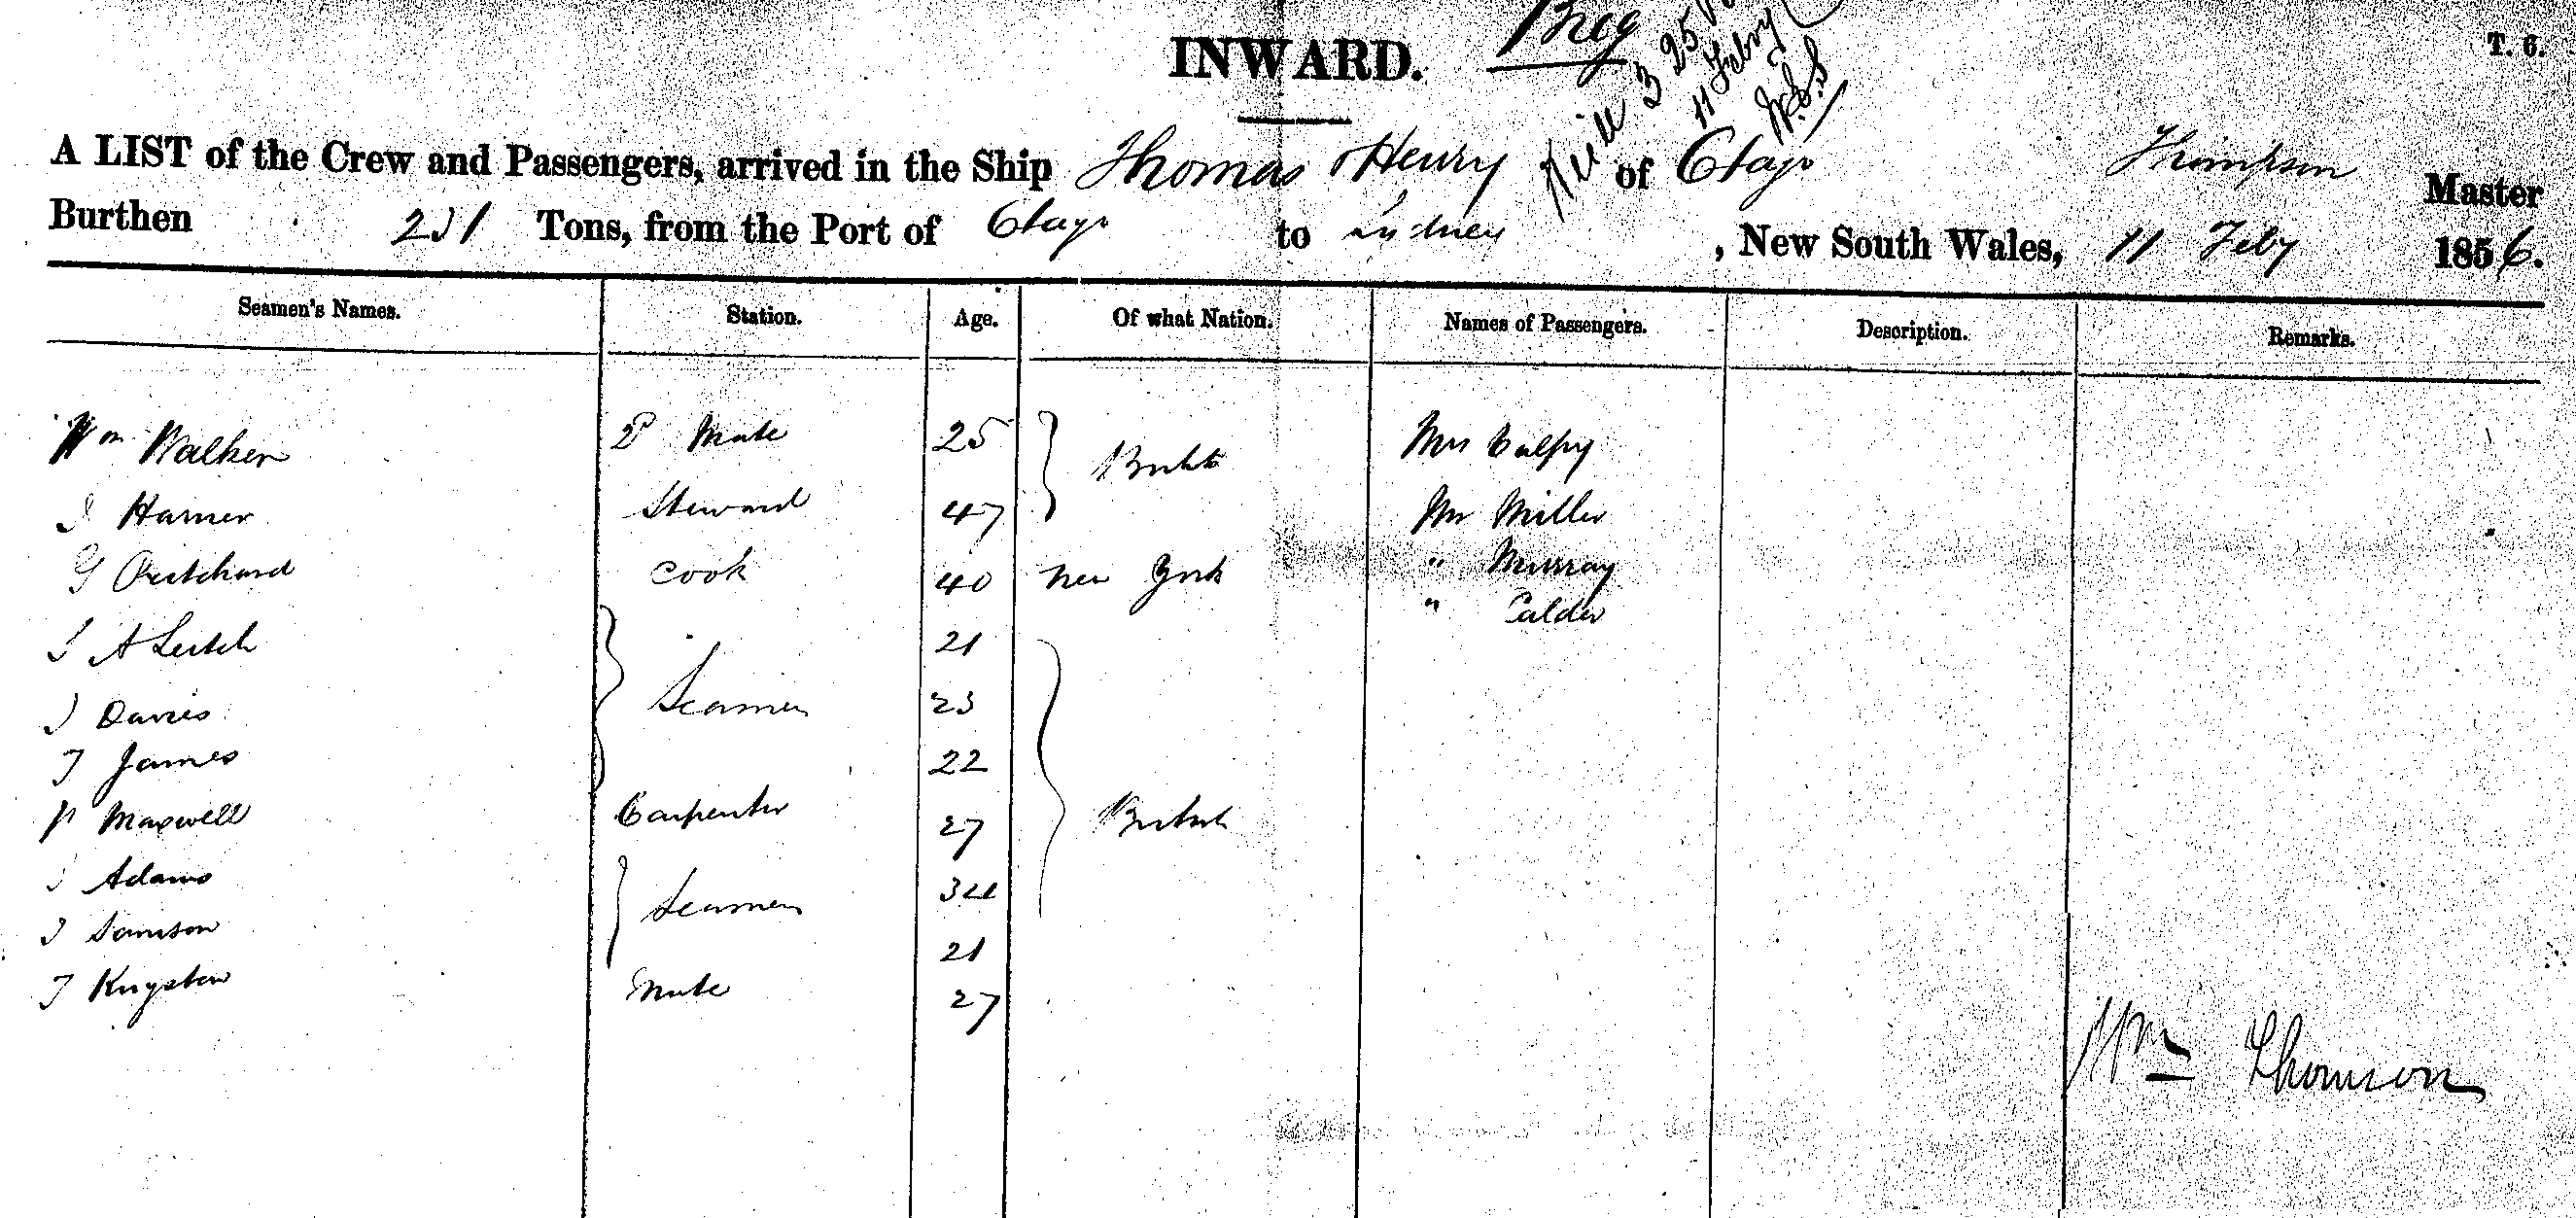 INWARD. Breg T. 6.
25
11 Febry
A LIST of the Crew and Passengers, arrived in the Ship Thomas Henry of Otago Thompson Master
Burthen 231 Tons, from the Port of Otago to Sydney , New South Wales, 11 Feby 1856.
Seamen's Names. Station. Age. Of what Nation. Names of Passengers. Description. Remarks.
Wm Walker 2d Mate 25 British Mrs Calpy
J Harner Steward 47 Mr Miller
G Pritchard Cook 40 New York " Murray
" Calder
J A Leitch 21
J Davies Seamen 23
T James 22
P Maxwell Carpenter 27 British
J Adams Seamen 34
J Samson 21
T Kingston Mate 27
Wm Thomson